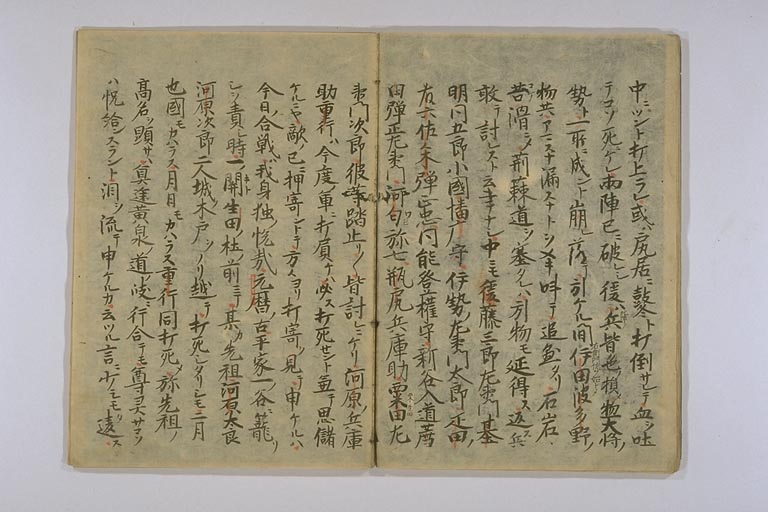 中ニツント打上ラレ或ハ尻居ニ鼓ト打倒サレテ血ヲ吐
テコソ死ニケレ両陣已ニ破レシ後ハ兵皆色ヲ損ノ物大将ノ
勢ト一所ニ成ント崩レ落テ引ケル間伊田波多野ノ
物共アニステ漏スナトシ夲呌テ追蒐タリ石岩
苔滑ニノ荊棘道ヲ塞タレハ引物モ延得ス返兵
敢テ討レスト云事ナシ中ニモ後藤三郎左衛門基
明同五郎小國播磨守伊勢左衛門太郎疋田
右六佐々木弾正忠同能登権守新谷入道薦
田弾正左衛門河匂弥七瓶尻兵庫助粟田左
衛門次郎彼等踏止リノ皆討レニケリ河原兵庫
助重行ハ今度ノ軍ニ打負ケハ必ス打死サント豆テ思儲
ケルニヤ敵ノ已ニ押寄ントテ方々ヨリ打寄ヲ見テ申ケルハ
今日ノ合戦ハ我身独ノ悦哉元暦ノ古平家一谷ニ籠リ
シヲ責シ時一開生田ノ杜ノ前ニテ某カ先祖河原太良
河原次郎二人城ノ木戸ヲノリ越テ打死シタリシモ二月
也國モカハラス月日モカハラス重行同打死ノ弥先祖ノ
高名ヲ顕サハ冥途黄泉ノ道ノ岐ニ行合テモ尊霊サコソ
ハ悦給ンスラント泪ヲ流テ申ケルカ云ツル言ニ少シモ違ス